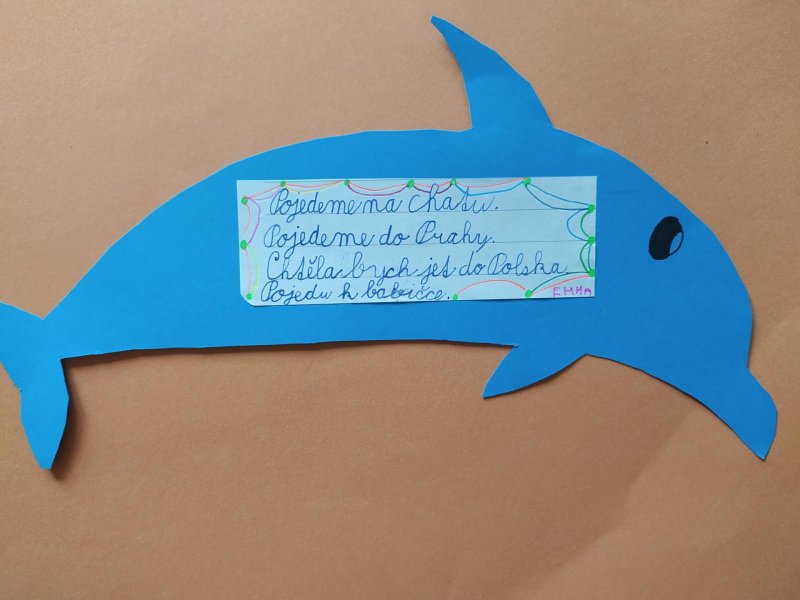 Pojedeme na chatu.
Pojedeme do Prahy.
Chtěla bych jet do Polska.
Pojedu k babičce.
EMMA